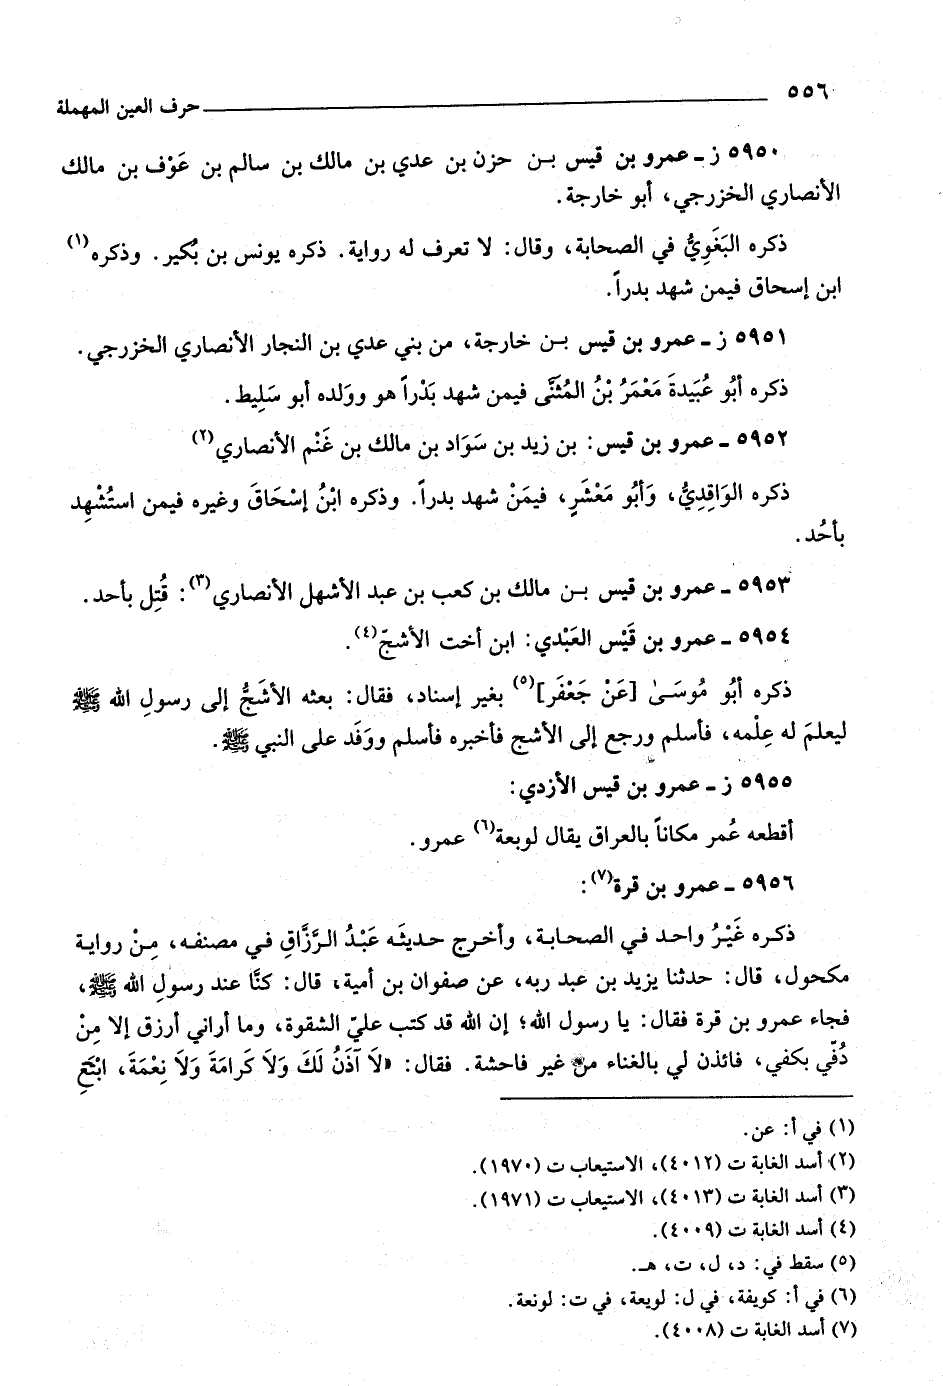 ٥٥٦ حرف العين المهملة
٥٩٥٠ ز ـ عمرو بن قيس بـن حزن بن عدي بن مالك بن سالم بن عَوْف بن مالك
الأنصاري الخزرجي، أبو خارجة.
ذكره البَغَوِيُّ في الصحابة، وقال: لا تعرف له رواية. ذكره يونس بن بُكير. وذكره(١)
ابن إسحاق فيمن شهد بدراً.
٥٩٥١ ز ـ عمرو بن قيس بـن خارجة، من بني عدي بن النجار الأنصاري الخزرجي.
ذكره أبُو عُبَيدَةَ مَعْمَرُ بْنُ المُثَنَّى فيمن شهد بَدْراً هو ووَلده أبو سَلِيط.
٥٩٥٢ ـ عمرو بن قيس: بن زيد بن سَوَاد بن مالك بن غَنْم الأنصاري(٢)
ذكره الوَاقِدِيُّ، وَأبُو مَعْشَرٍ، فيمَنْ شهد بدراً. وذكره ابْنُ إسْحَاقَ وغيره فيمن استُشْهِد
بأحُد.
٥٩٥٣ ـ عمرو بن قيس بـن مالك بن كعب بن عبد الأشهل الأنصاري(٣): قُتِل بأحد.
٥٩٥٤ ـ عمرو بن قَيْس العَبْدي: ابن أخت الأشجّ(٤).
ذكره أبُو مُوسَىٰ [عَنْ جَعْفَر](٥) بغير إسناد، فقال: بعثه الأشَجُّ إلى رسولِ الله ﷺ
ليعلمَ له عِلْمه، فأسلم ورجع إلى الأشج فأخبره فأسلم ووَفَد على النبي ﷺ.
٥٩٥٥ ز ـ عمرو بن قيس الأزدي:
أقطعه عُمر مكاناً بالعراق يقال لوبعة(٦) عمرو.
٥٩٥٦ ـ عمرو بن قرة(٧):
ذكـره غَيْرُ واحـد فـي الصحابـة، وأخـرج حـديثَـه عَبْدُ الـرَّزَّاقِ فـي مصنفـه، مِـنْ روايـة
مكحول، قال: حدثنا يزيد بن عبد ربه، عن صفوان بن أمية، قال: كنَّا عند رسولِ الله ﷺ،
فجاء عمرو بن قرة فقال: يا رسول الله؛ إن الله قد كتب عليّ الشقوة، وما أراني أرزق إلا مِنْ
دُفّي بكفي، فائذن لي بالغناء من غير فاحشة. فقال: «لاَ آذَنُ لَكَ وَلاَ كَرامَةَ وَلاَ نِعْمَةَ، ابْتَغِ
(١) في أ: عن.
(٢) أسد الغابة ت (٤٠١٢)، الاستيعاب ت (١٩٧٠).
(٣) أسد الغابة ت (٤٠١٣)، الاستيعاب ت (١٩٧١).
(٤) أسد الغابة ت (٤٠٠٩).
(٥) سقط في: د، ل، ت، هـ.
(٦) في أ: كويفة، في ل: لويعة، في ت: لونعة.
(٧) أسد الغابة ت (٤٠٠٨).